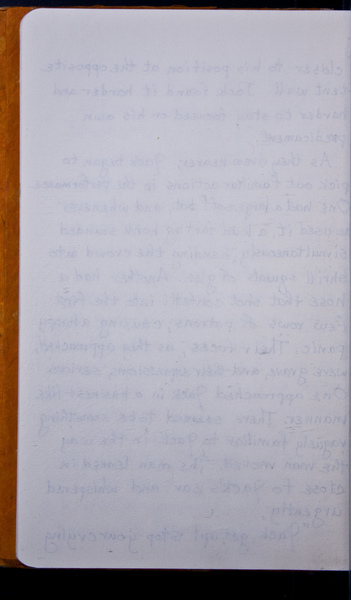 closer to his position at the opposite
tent wall. Jack found it harder and
harder to stay focused on his own
predicament.
As they drew nearer, Jack began to
pick out familiar actions in the performance.
One had a prop and whenever
he used it, a horn sounded
simultaneously, sending the crowd into
shrill squeals of glee. Another had a
hose that shot confetti into the first
few rows of patrons, causing a happy
panic. Their voices, as they approached,
were grave, and their expressions, serious.
One approached Jack in a harmless like
manner. There seemed to be something
vaguely familiar to Jack in the way
the man moved. The man leaned in
close to Jack's ear and whispered
urgently.
"Jack, get up! Stop your crying